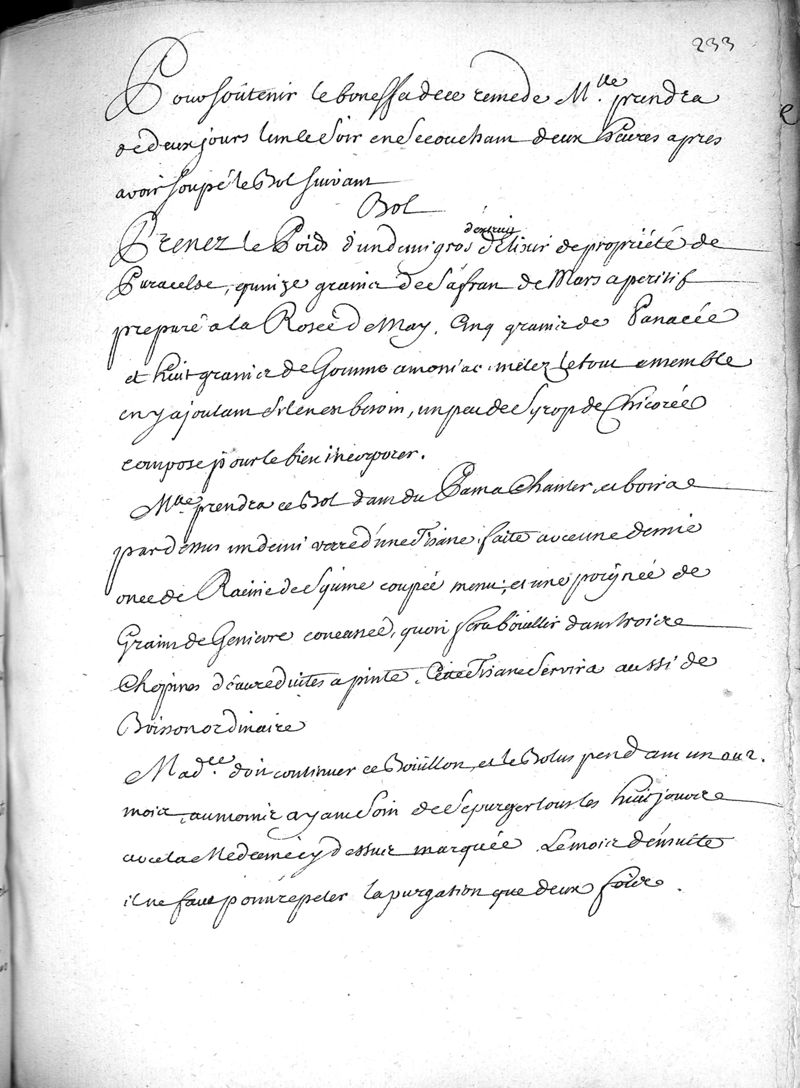 233
Pour soûtenir le bon effa de ce remede Mlle prendra
de deux jours l'un le soir en se couchant deux heures apres
avoir soupé le Bol suivant
Bol
d'extrait
Prenez le Poids d'un demi gros d'Elixir de propriété de
Paracelse, quinze grains de Safran de Mars aperitif
preparé a la Rosée de May, Cinq grains de Panacée
et huit grains de Gomme amoniac, mélez le tout ensemble
en y ajoutant s'il en en besoin, un peu de Syrop de Chicorée
composé pour le bien incorporer.
Mlle prendra ce Bol dans du Pain a Chanter, et boira
par dessus un demi verre d'une Tisane faite avec une demie
once de Racine de Squine coupée menu; et une poignée de
Grains de Genievre concassé, qu'on fera boüillir dans trois
Chopines d'eau reduites a pinte. Cette Tisane servira aussi de
Boisson ordinaire
Madlle doit continuer ce Boüillon, et le Bolus pendant un ou 2.
mois, au moins ayant soin de se purger tous les huit jours
avec la Medecine cy dessus marquée. Le mois d'ensuite
il ne faut point répeter la purgation que deux fois.